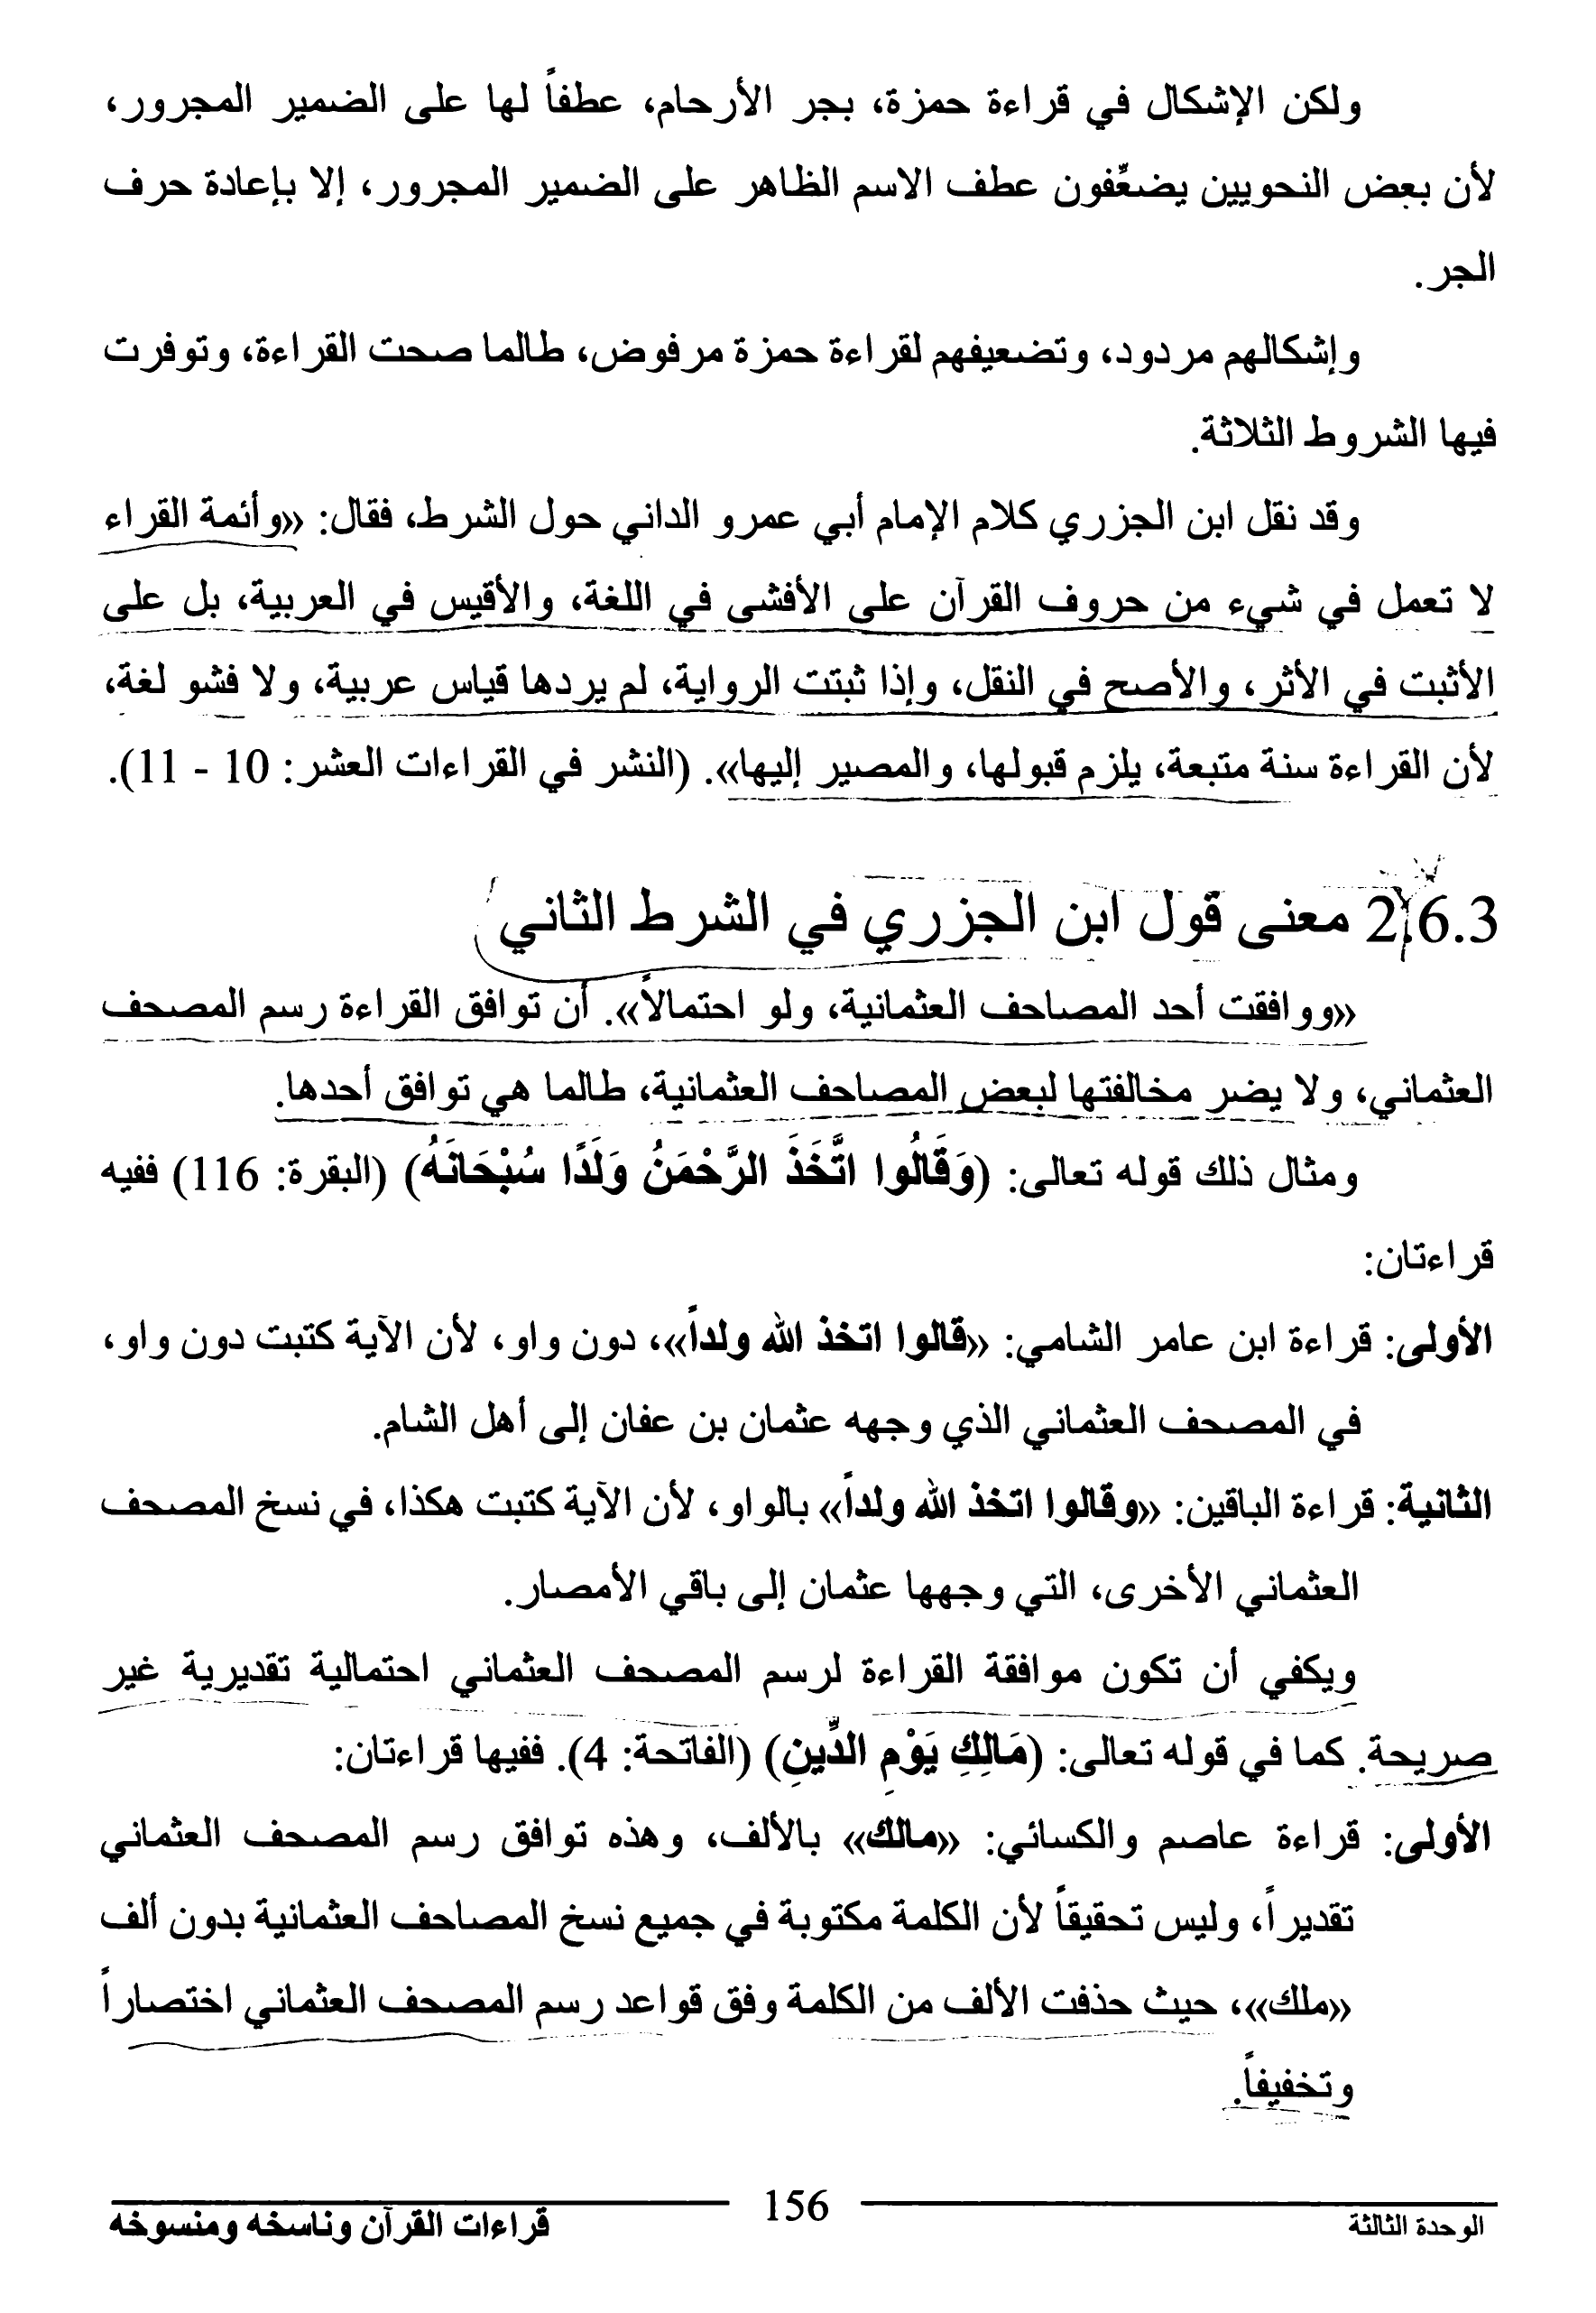 ولكن الإشكال في قراءة حمزة، بجر الأرحام، عطفاً لها على الضمير المجرور،
لأن بعض النحويين يضعّفون عطف الاسم الظاهر على الضمير المجرور، إلا بإعادة حرف
الجر.
وإشكالهم مردود، وتضعيفهم لقراءة حمزة مرفوض، طالما صحت القراءة، وتوفرت
فيها الشروط الثلاثة.
وقد نقل ابن الجزري كلام الإمام أبي عمرو الداني حول الشرط، فقال: «وأئمة القراء
لا تعمل في شيء من حروف القرآن على الأفشى في اللغة، والأقيس في العربية، بل على
الأثبت في الأثر، والأصح في النقل، وإذا ثبتت الرواية، لم يردها قياس عربية، ولا فشو لغة،
لأن القراءة سنة متبعة، يلزم قبولها، والمصير إليها». (النشر في القراءات العشر: 10 - 11).
2.6.3 معنى قول ابن الجزري في الشرط الثاني
«ووافقت أحد المصاحف العثمانية، ولو احتمالاً». أن توافق القراءة رسم المصحف
العثماني، ولا يضر مخالفتها لبعض المصاحف العثمانية، طالما هي توافق أحدها.
ومثال ذلك قوله تعالى: (وَقَالُوا اتَّخَذَ الرَّحْمَنُ وَلَدًا سُبْحَانَهُ) (البقرة: 116) ففيه
قراءتان:
الأولى: قراءة ابن عامر الشامي: «قالوا اتخذ الله ولداً»، دون واو، لأن الآية كتبت دون واو،
في المصحف العثماني الذي وجهه عثمان بن عفان إلى أهل الشام.
الثانية: قراءة الباقين: «وقالوا اتخذ الله ولداً» بالواو، لأن الآية كتبت هكذا، في نسخ المصحف
العثماني الأخرى، التي وجهها عثمان إلى باقي الأمصار.
ويكفي أن تكون موافقة القراءة لرسم المصحف العثماني احتمالية تقديرية غير
صريحة. كما في قوله تعالى: (مَالِكِ يَوْمِ الدِّينِ) (الفاتحة: 4). ففيها قراءتان:
الأولى: قراءة عاصم والكسائي: «مالك» بالألف، وهذه توافق رسم المصحف العثماني
تقديراً، وليس تحقيقاً لأن الكلمة مكتوبة في جميع نسخ المصاحف العثمانية بدون ألف
«ملك»، حيث حذفت الألف من الكلمة وفق قواعد رسم المصحف العثماني اختصاراً
وتخفيفاً.
الوحدة الثالثة 156 قراءات القرآن وناسخه ومنسوخه